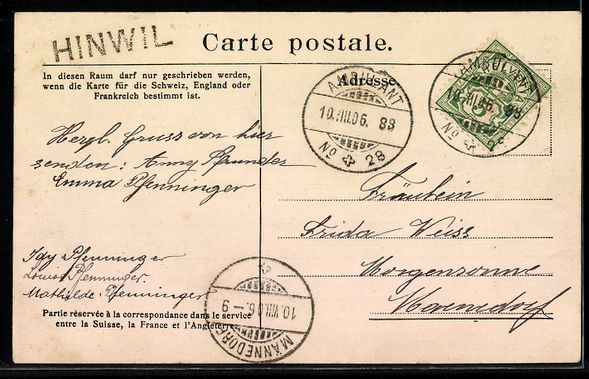 HINWIL
Carte postale.
In diesen Raum darf nur geschrieben werden,
wenn die Karte für die Schweiz, England oder
Frankreich bestimmt ist.
Adresse
AMBULANT
10.VIII.06. 88
No 29
AMBULANT
10.VIII.06. 88
No 29
5
Herzl. Gruss von hier
senden: Anny Pfrunder
Emma Pfenninger
Fräulein
Frida Weiss
Morgensonne
Maenedorf
Idy Pfenninger
Louise Pfenninger.
Mathilde Pfenninger
Partie réservée à la correspondance dans le service
entre la Suisse, la France et l'Angleterre
10.VIII.06.-9
MÄNNEDORF